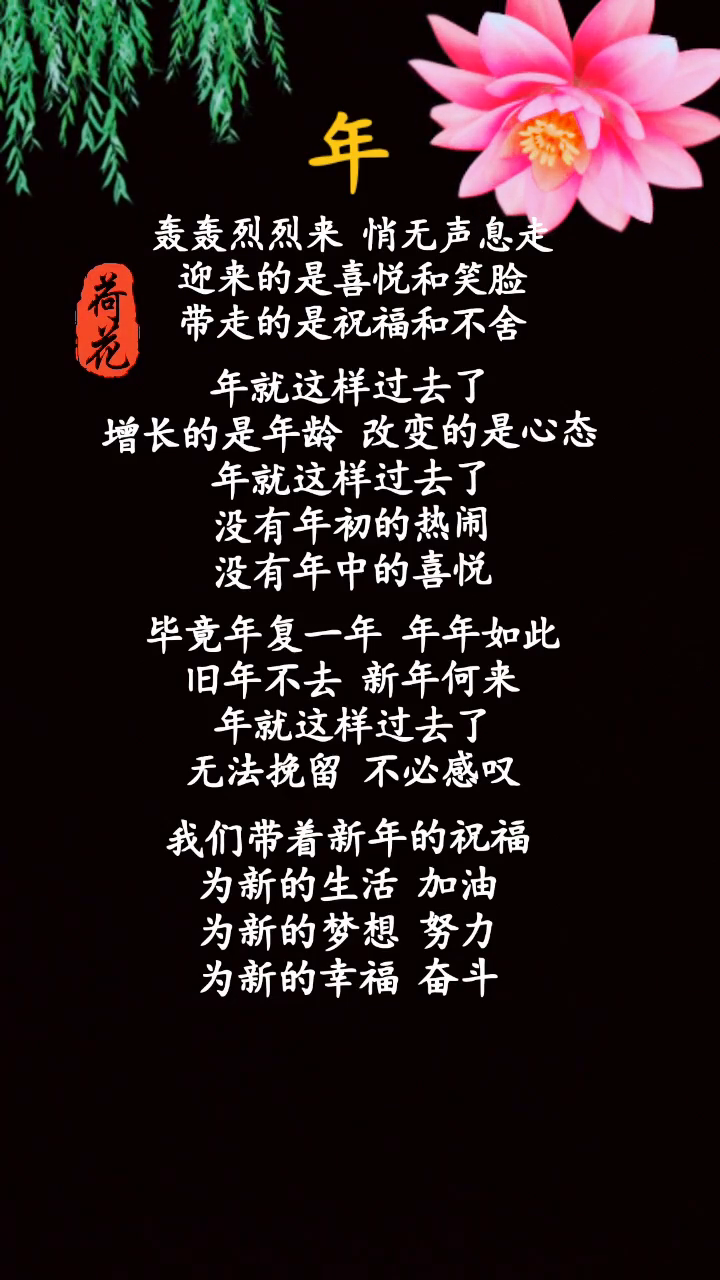 年
轰轰烈烈来 悄无声息走
迎来的是喜悦和笑脸
带走的是祝福和不舍
荷花
年就这样过去了
增长的是年龄 改变的是心态
年就这样过去了
没有年初的热闹
没有年中的喜悦
毕竟年复一年 年年如此
旧年不去 新年何来
年就这样过去了
无法挽留 不必感叹
我们带着新年的祝福
为新的生活 加油
为新的梦想 努力
为新的幸福 奋斗